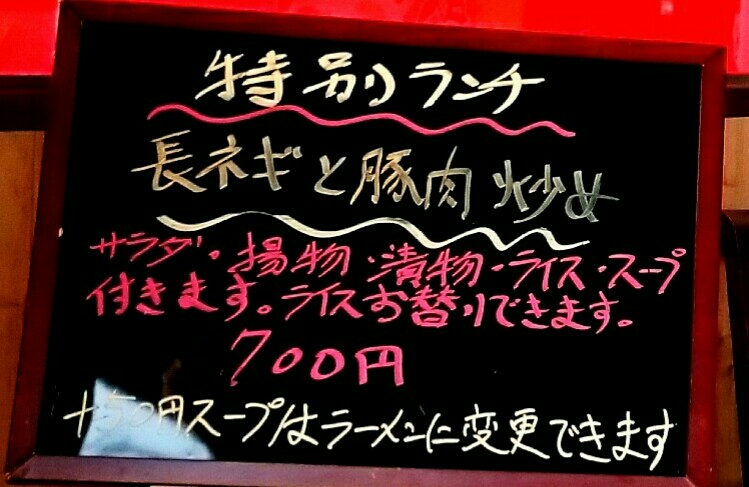 特別ランチ
長ネギと豚肉炒め
サラダ・揚物・漬物・ライス・スープ
付きます。ライスお替りできます。
700円
+50円スープはラーメンに変更できます